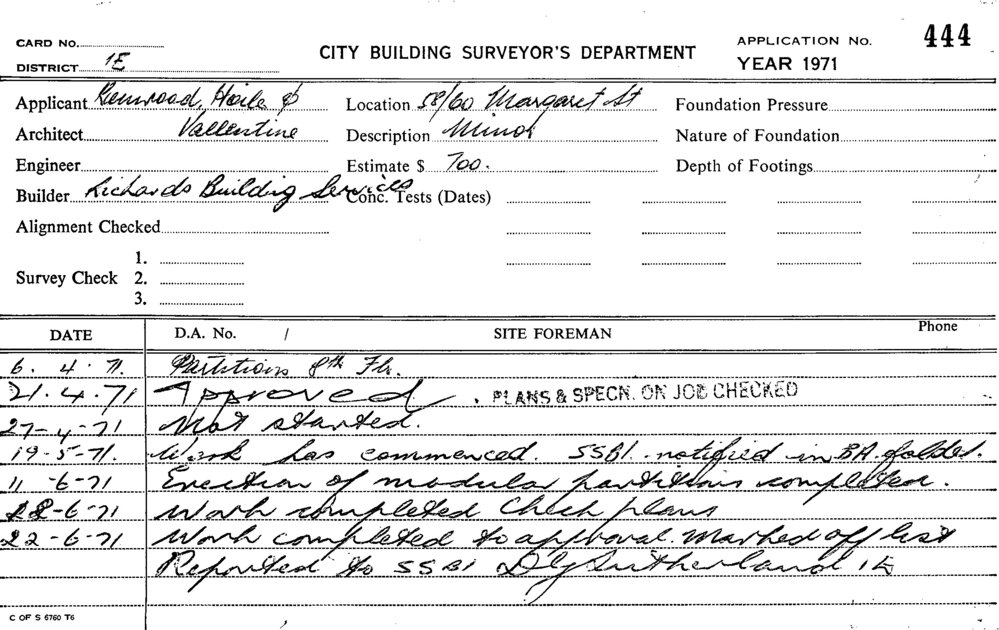 CARD No.
CITY BUILDING SURVEYOR'S DEPARTMENT
APPLICATION No. 444
DISTRICT 1E
YEAR 1971
Applicant Kenwood, Hoile &
Location 58/60 Margaret St
Foundation Pressure
Architect Vallentine
Description Minor
Nature of Foundation
Engineer
Estimate $ 700.
Depth of Footings
Builder Richards Building Services
Conc. Tests (Dates)
Alignment Checked
1.
Survey Check 2.
3.
DATE D.A. No. / SITE FOREMAN Phone
6. 4. 71 Partitions 8th Flr.
21.4.71 Approved. PLANS & SPECN. ON JOB CHECKED
27-4-71 Not started.
19-5-71. Work has commenced. SSBI. notified in BA. folder.
11-6-71 Erection of modular partitions completed.
22-6-71 Work completed Check plans
22-6-71 Work completed to approval. Marked off list
Reported to SSBI Sutherland 1E
C OF S 6760 T6